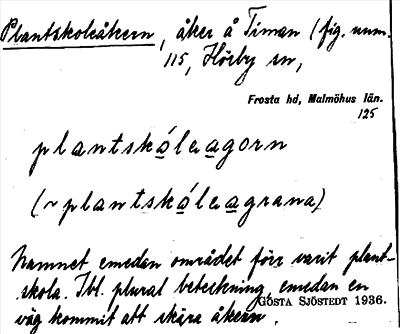 Plantskoleåkern, åker å Timan (fig. num.
115, Hörby sn,
Frosta hd, Malmöhus län.
125
plantskǫ́lɐagorn
(~plantskǫ́lɐagrana)
Namnet emedan området förr varit plant-
skola. Ibl. plural beteckning, emedan en
väg kommit att skära åkern.
GÖSTA SJÖSTEDT 1936.